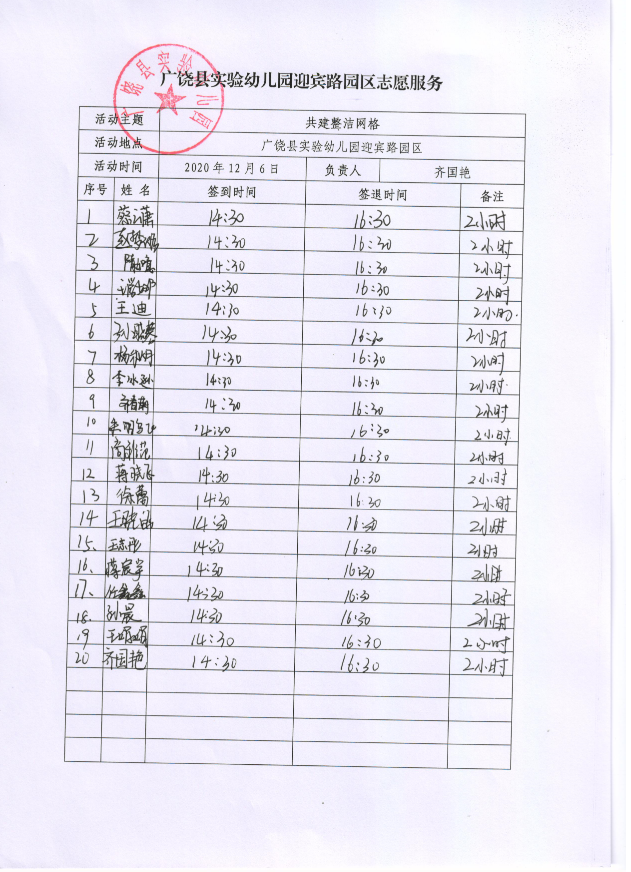 广饶县实验幼儿园迎宾路园区志愿服务
广饶县实验幼儿园
活动主题 共建整洁网格
活动地点 广饶县实验幼儿园迎宾路园区
活动时间 2020年12月6日 负责人 齐国艳
序号 姓名 签到时间 签退时间 备注
1 14:30 16:30 2小时
2 14:30 16:30 2小时
3 14:30 16:30 2小时
4 14:30 16:30 2小时
5 王迪 14:30 16:30 2小时.
6 14:30 16:30 2小时
7 14:30 16:30 2小时
8 14:30 16:30 2小时.
9 14:30 16:30 2小时
10 14:30 16:30 2小时
11 14:30 16:30 2小时
12 蒋晓飞 14:30 16:30 2小时
13 徐蕾 14:30 16:30 2小时
14 14:30 16:30 2小时
15、 王志彤 14:30 16:30 2小时
16、 14:30 16:30 2小时
17、 任鑫鑫 14:30 16:30 2小时
18. 孙晨 14:30 16:30 2小时
19 王娟娟 14:30 16:30 2小时
20 齐国艳 14:30 16:30 2小时